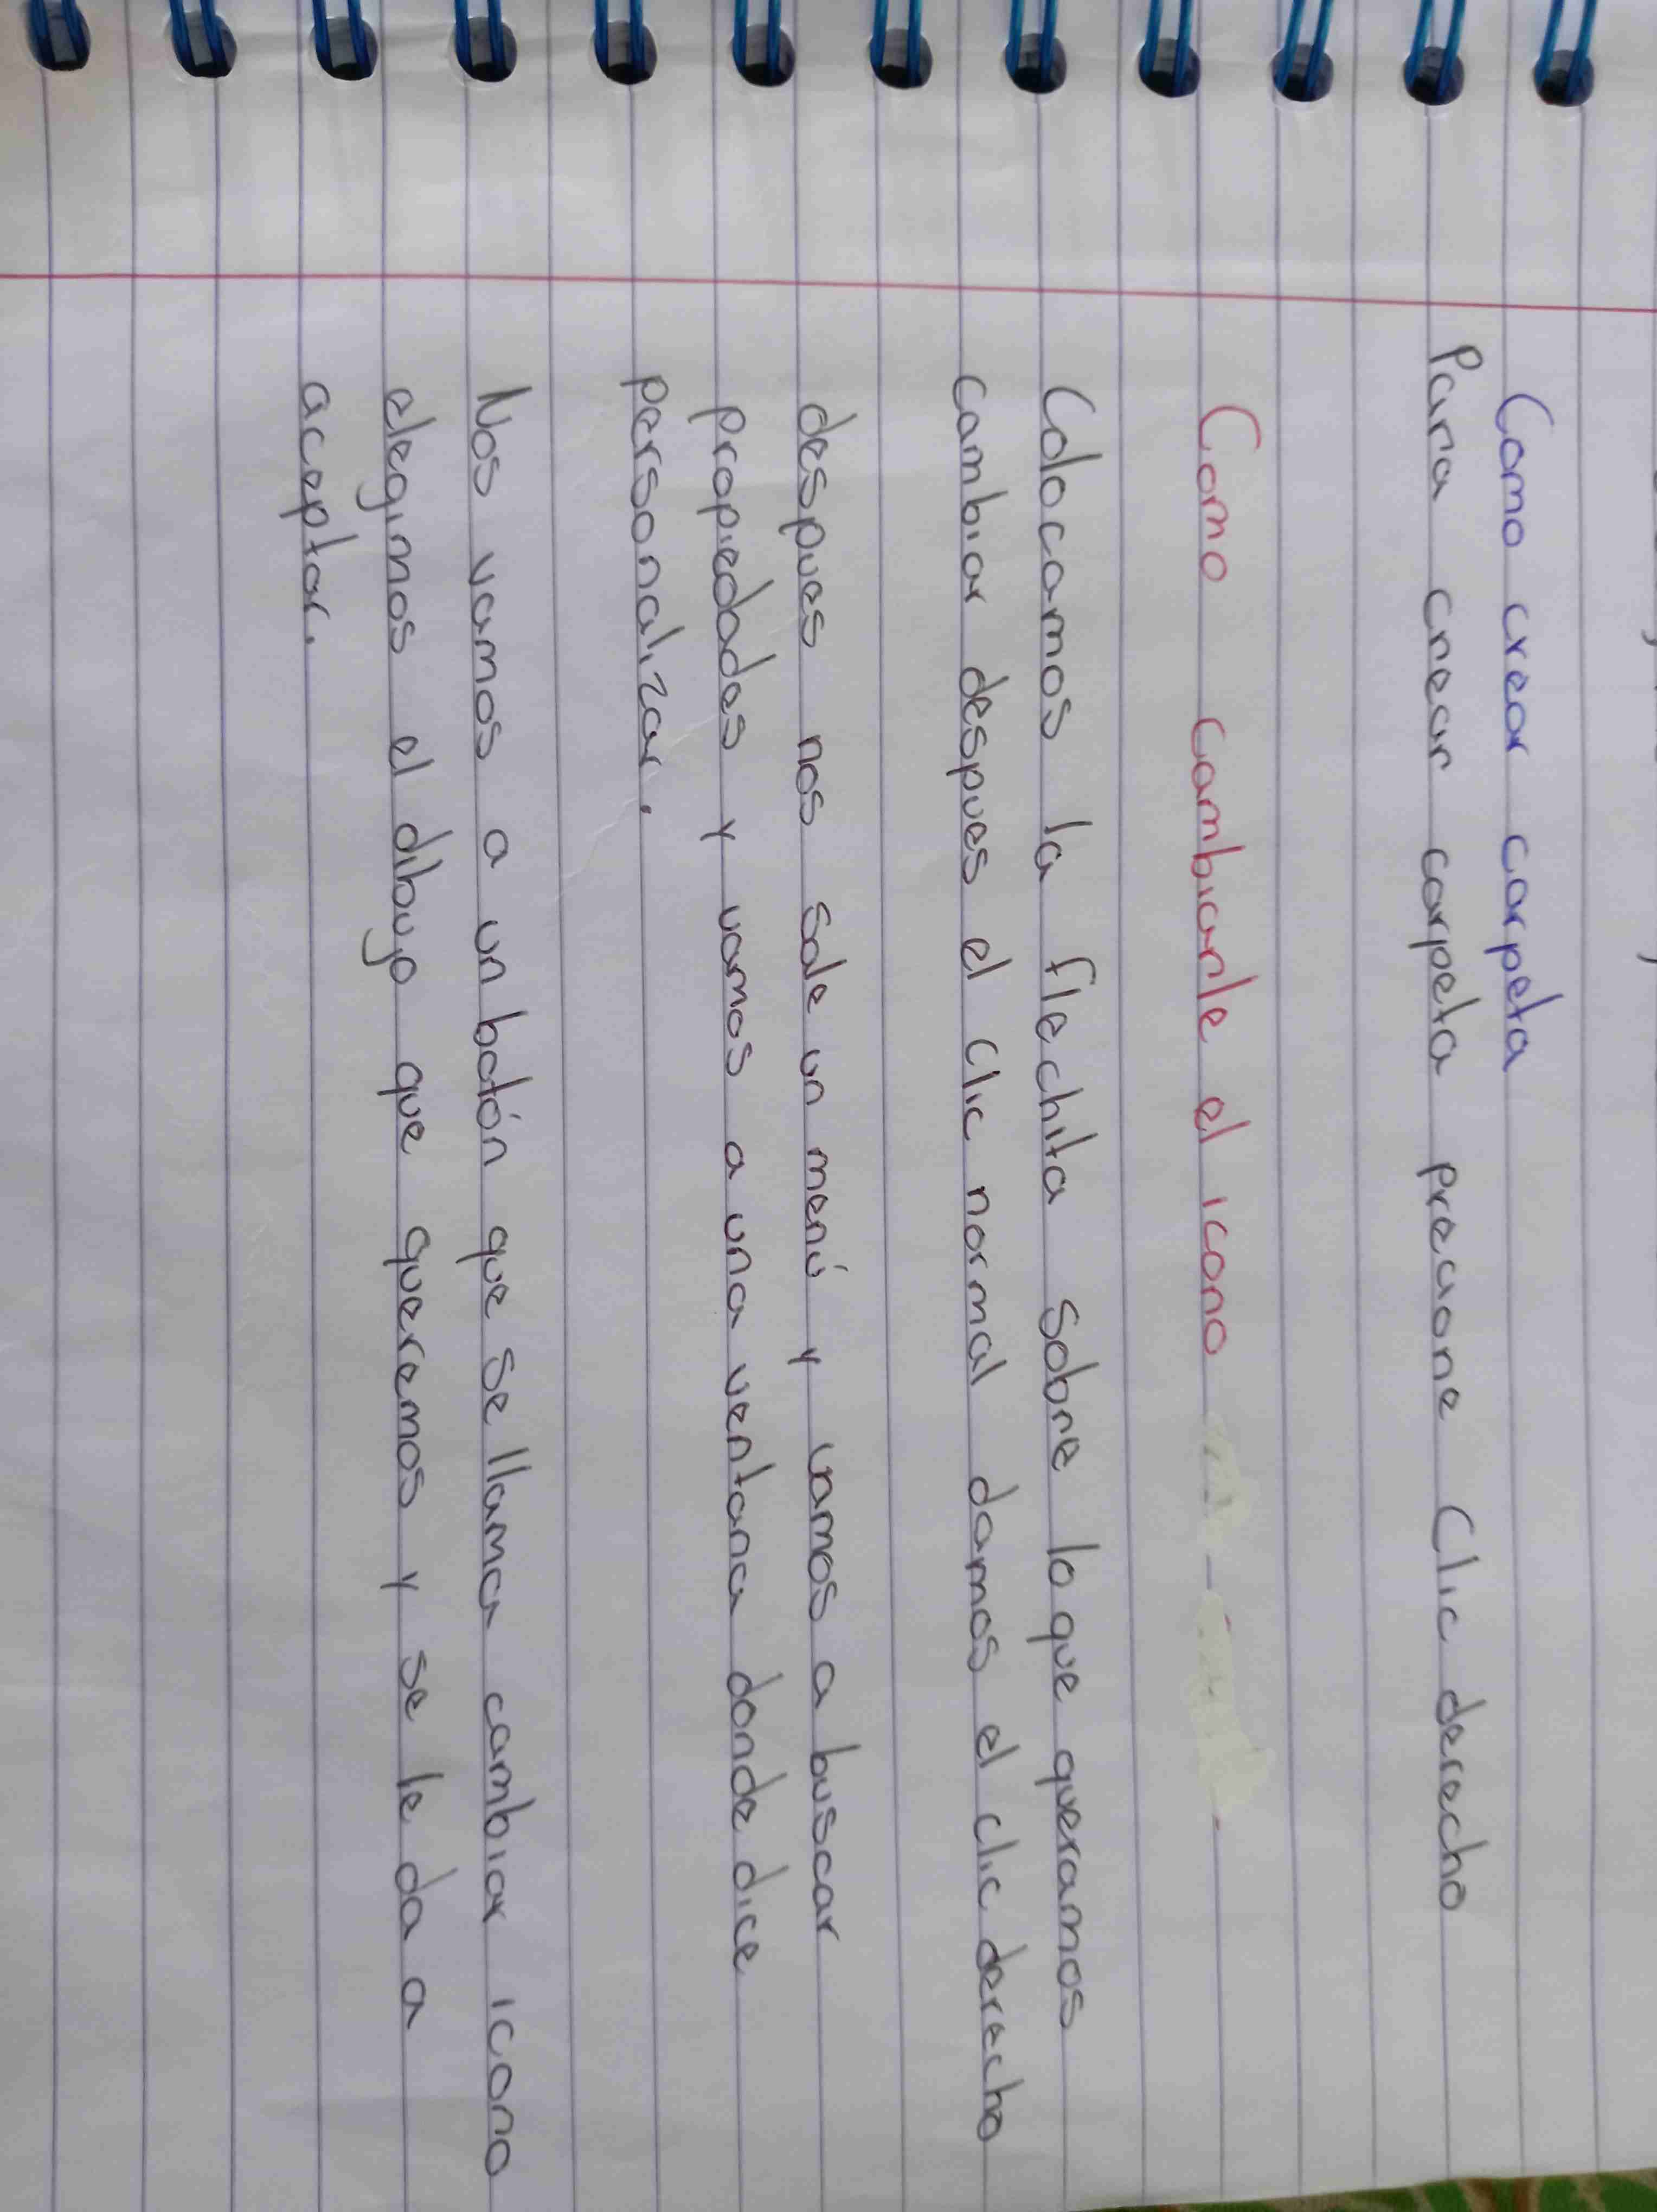 Como crear carpeta
Para crear carpeta precione Clic derecho
Como cambiarle el icono
Colocamos la flechita sobre lo que queramos
cambiar despues el clic normal damos el clic derecho
despues nos sale un menú y vamos a buscar
propiedades y vamos a una ventana donde dice
personalizar.
Nos vamos a un botón que se llama cambiar icono
elegimos el dibujo que queremos y se le da a
aceptar.